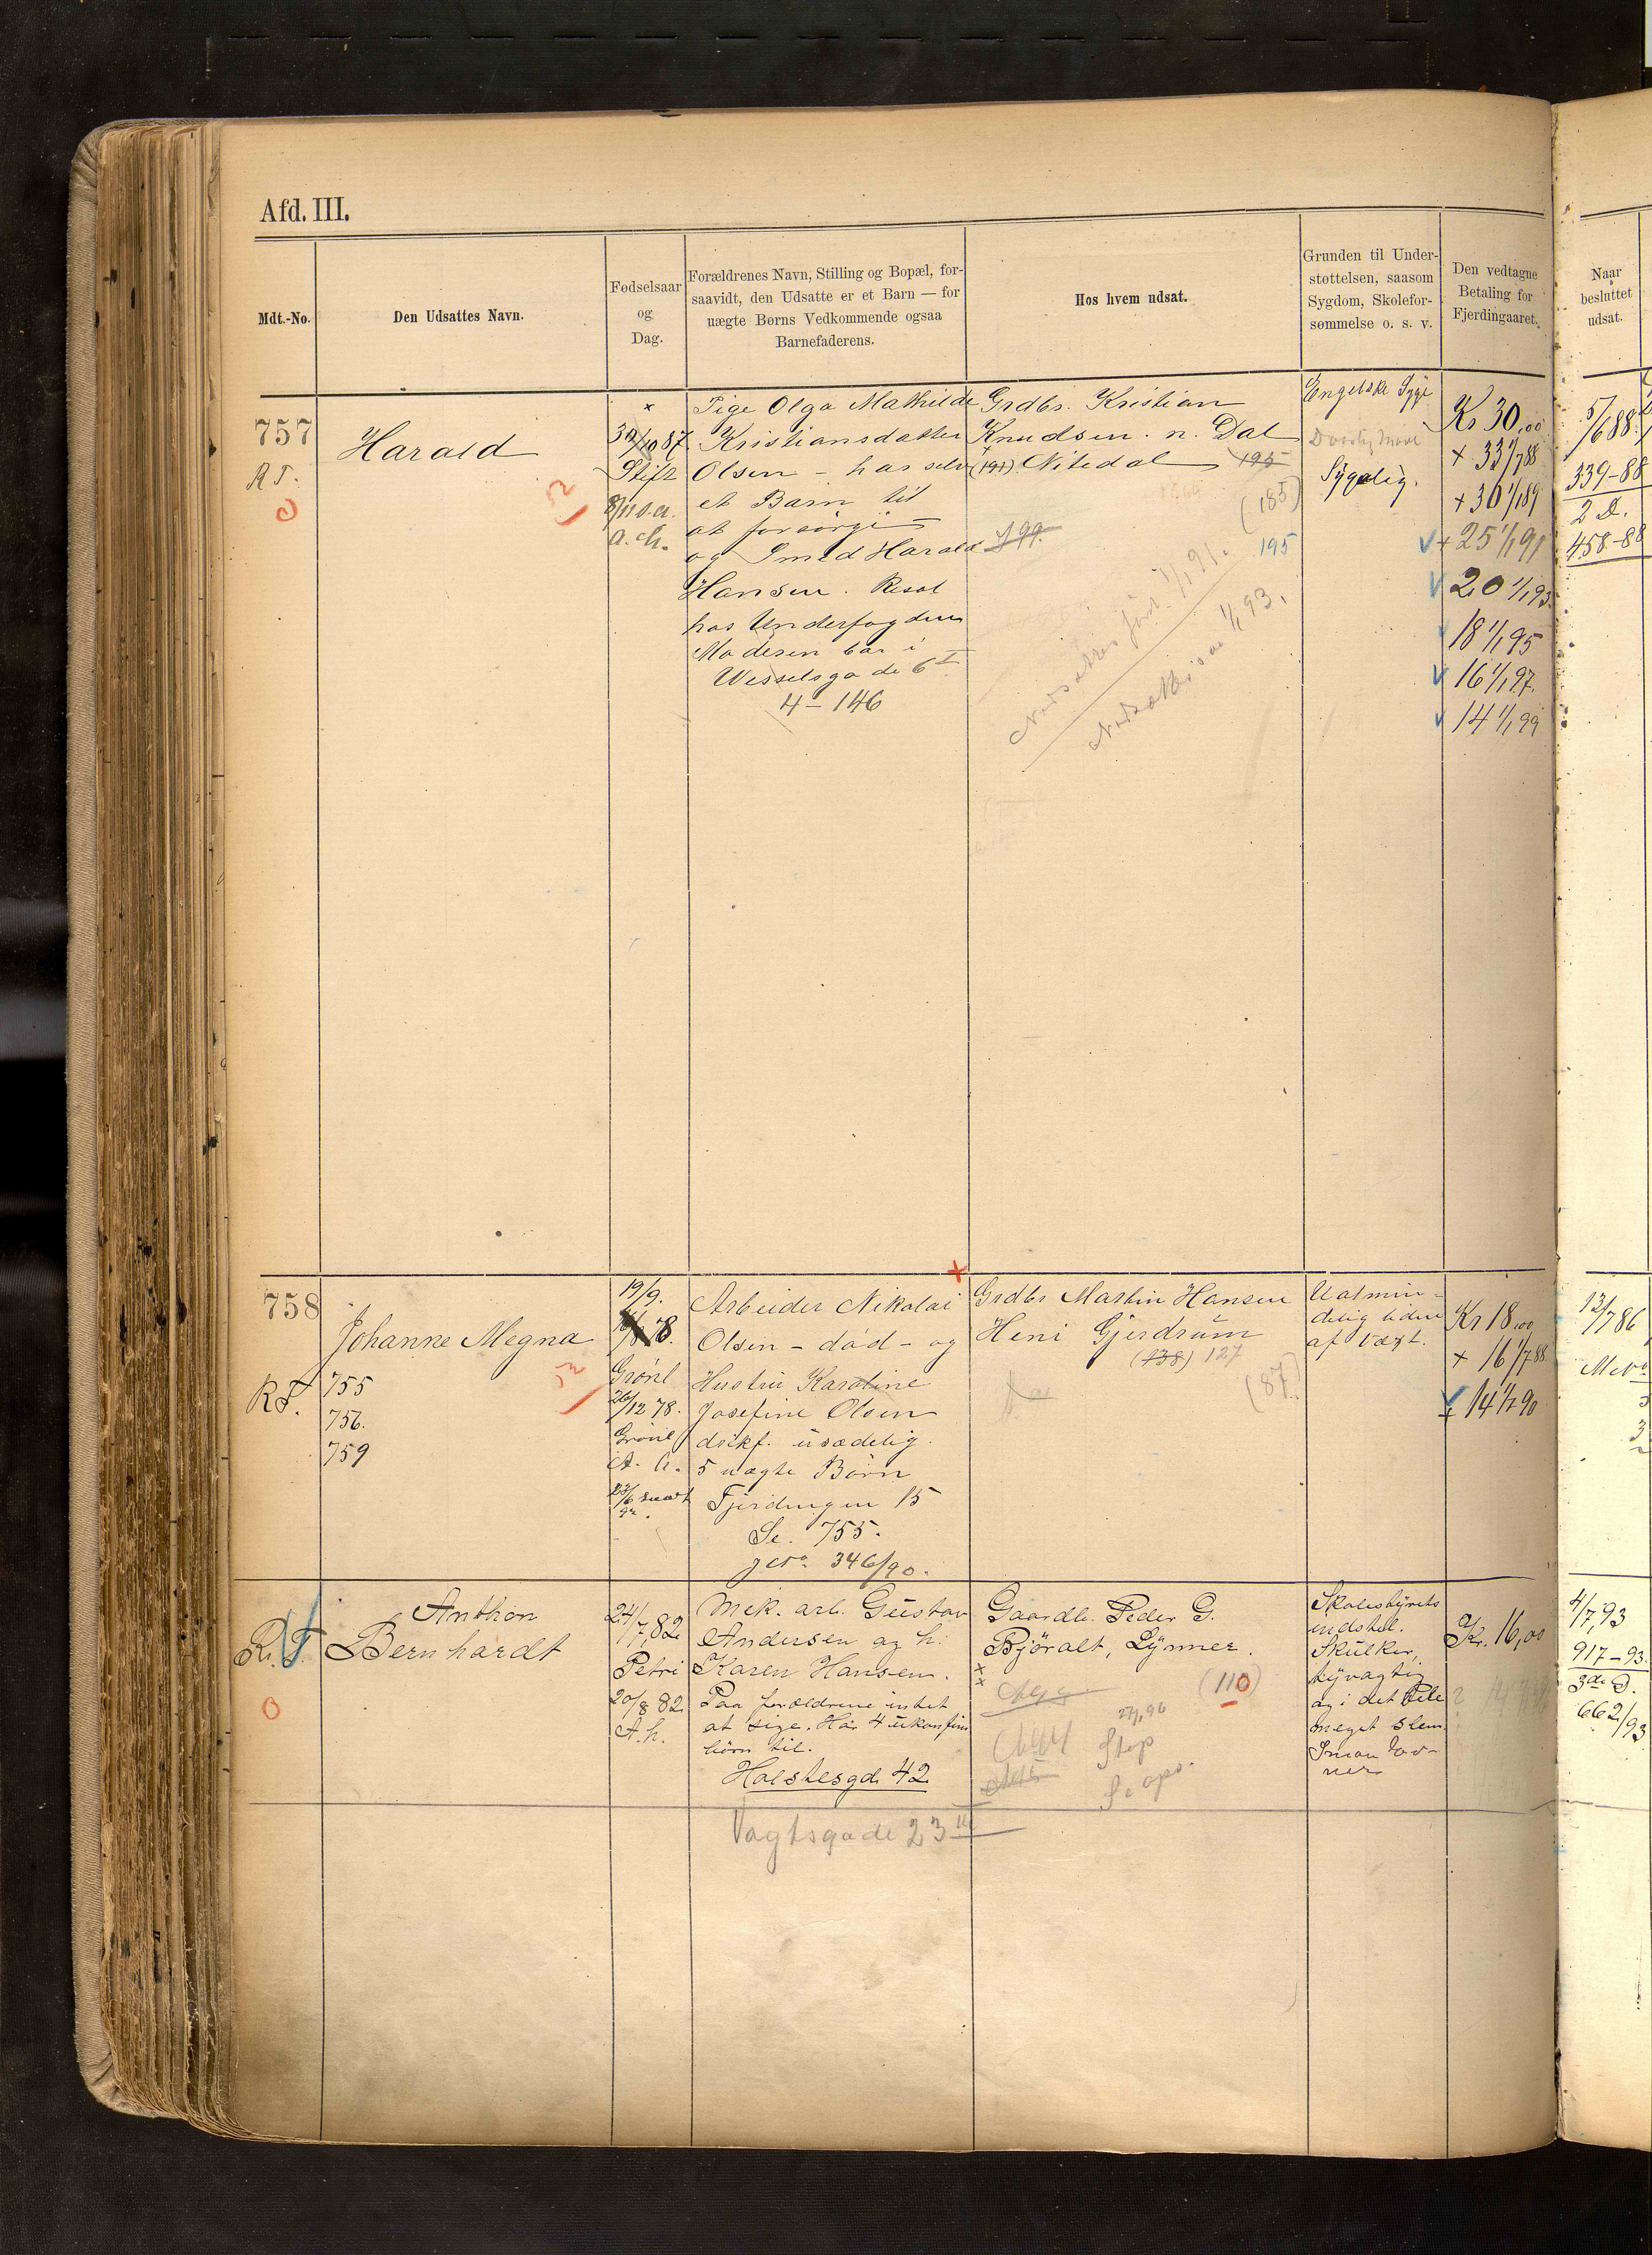 Afd. III.
Mdt.-No.
Den Udsattes Navn.
Fødselsaar
og
Dag.
Forældrenes Navn, Stilling og Bopæl, for-
saavidt, den Udsatte er et Barn — for
uægte Børns Vedkommende ogsaa
Barnefaderens.
Hos hvem udsat.
Grunden til Under-
støttelsen, saasom
Sygdom, Skolefor-
sømmelse o. s. v.
Den vedtagne
Betaling for
Fjerdingaaret.
Naar
besluttet
udsat.
757
R T.
Harald
52
10 87.
Stift
8/11 s.a.
a. ch.
Pige Olga Mathilde
Kristiansdatter
Olsen – har selv
et Barn til
at forsörge –
og Smed Harald
Hansen. Resol
hos Underfogden
Moderen bor i
Wesselsgade 6 I
4 – 146
Grdbr. Kristian
Knudsen. n. Dal
(191) Nitedal 195
(185)
195
1/1 91.
1/1 93.
Engelske Syge
Sygelig.
Kr 30,00
+ 33 1/7 88
+ 30 1/1 89
+ 25 1/1 91
20 1/1 93.
18 1/1 95
16 1/1 97.
14 1/1 99
5/6 88.
339–88
2 D.
458–88
758
R T.
Johanne Megna
755
756.
759
52
19/9.
78.
Grönl
26/12 78.
Grönl
A. h.
Arbeider Nikolai
Olsen – död – og
Hustru Karoline
Josefine Olsen
drikf. usædelig.
5 uægte Börn
Fjerdingen 15
Se. 755.
346/90.
Grdbr Martin Hansen
Heni Gjerdrum
(138) 127
(87)
Ualmin-
delig liden
af Væxt.
Kr 18,00
+ 16 1/7 88
+ 14 1/7 90
13/7 86
R. T.
Anthon
Bernhardt
24/7, 82
Petri
20/8 82
A. h.
Mek. arb. Gustav
Andersen og h.
Karen Hansen.
Paa forældrene intet
at sige. Har 4 ukonfirm
börn til.
Holstesgd. 42
Vogtsgade 23 III
Gaardb. Peder G.
Björalt, Lynner.
(110)
Stop
Skolestyrets
indstil.
Skulker,
tyvagtig
og i det Hele
meget slem.
Kr. 16,00
4/7, 93
917–93.
3die D.
662/93